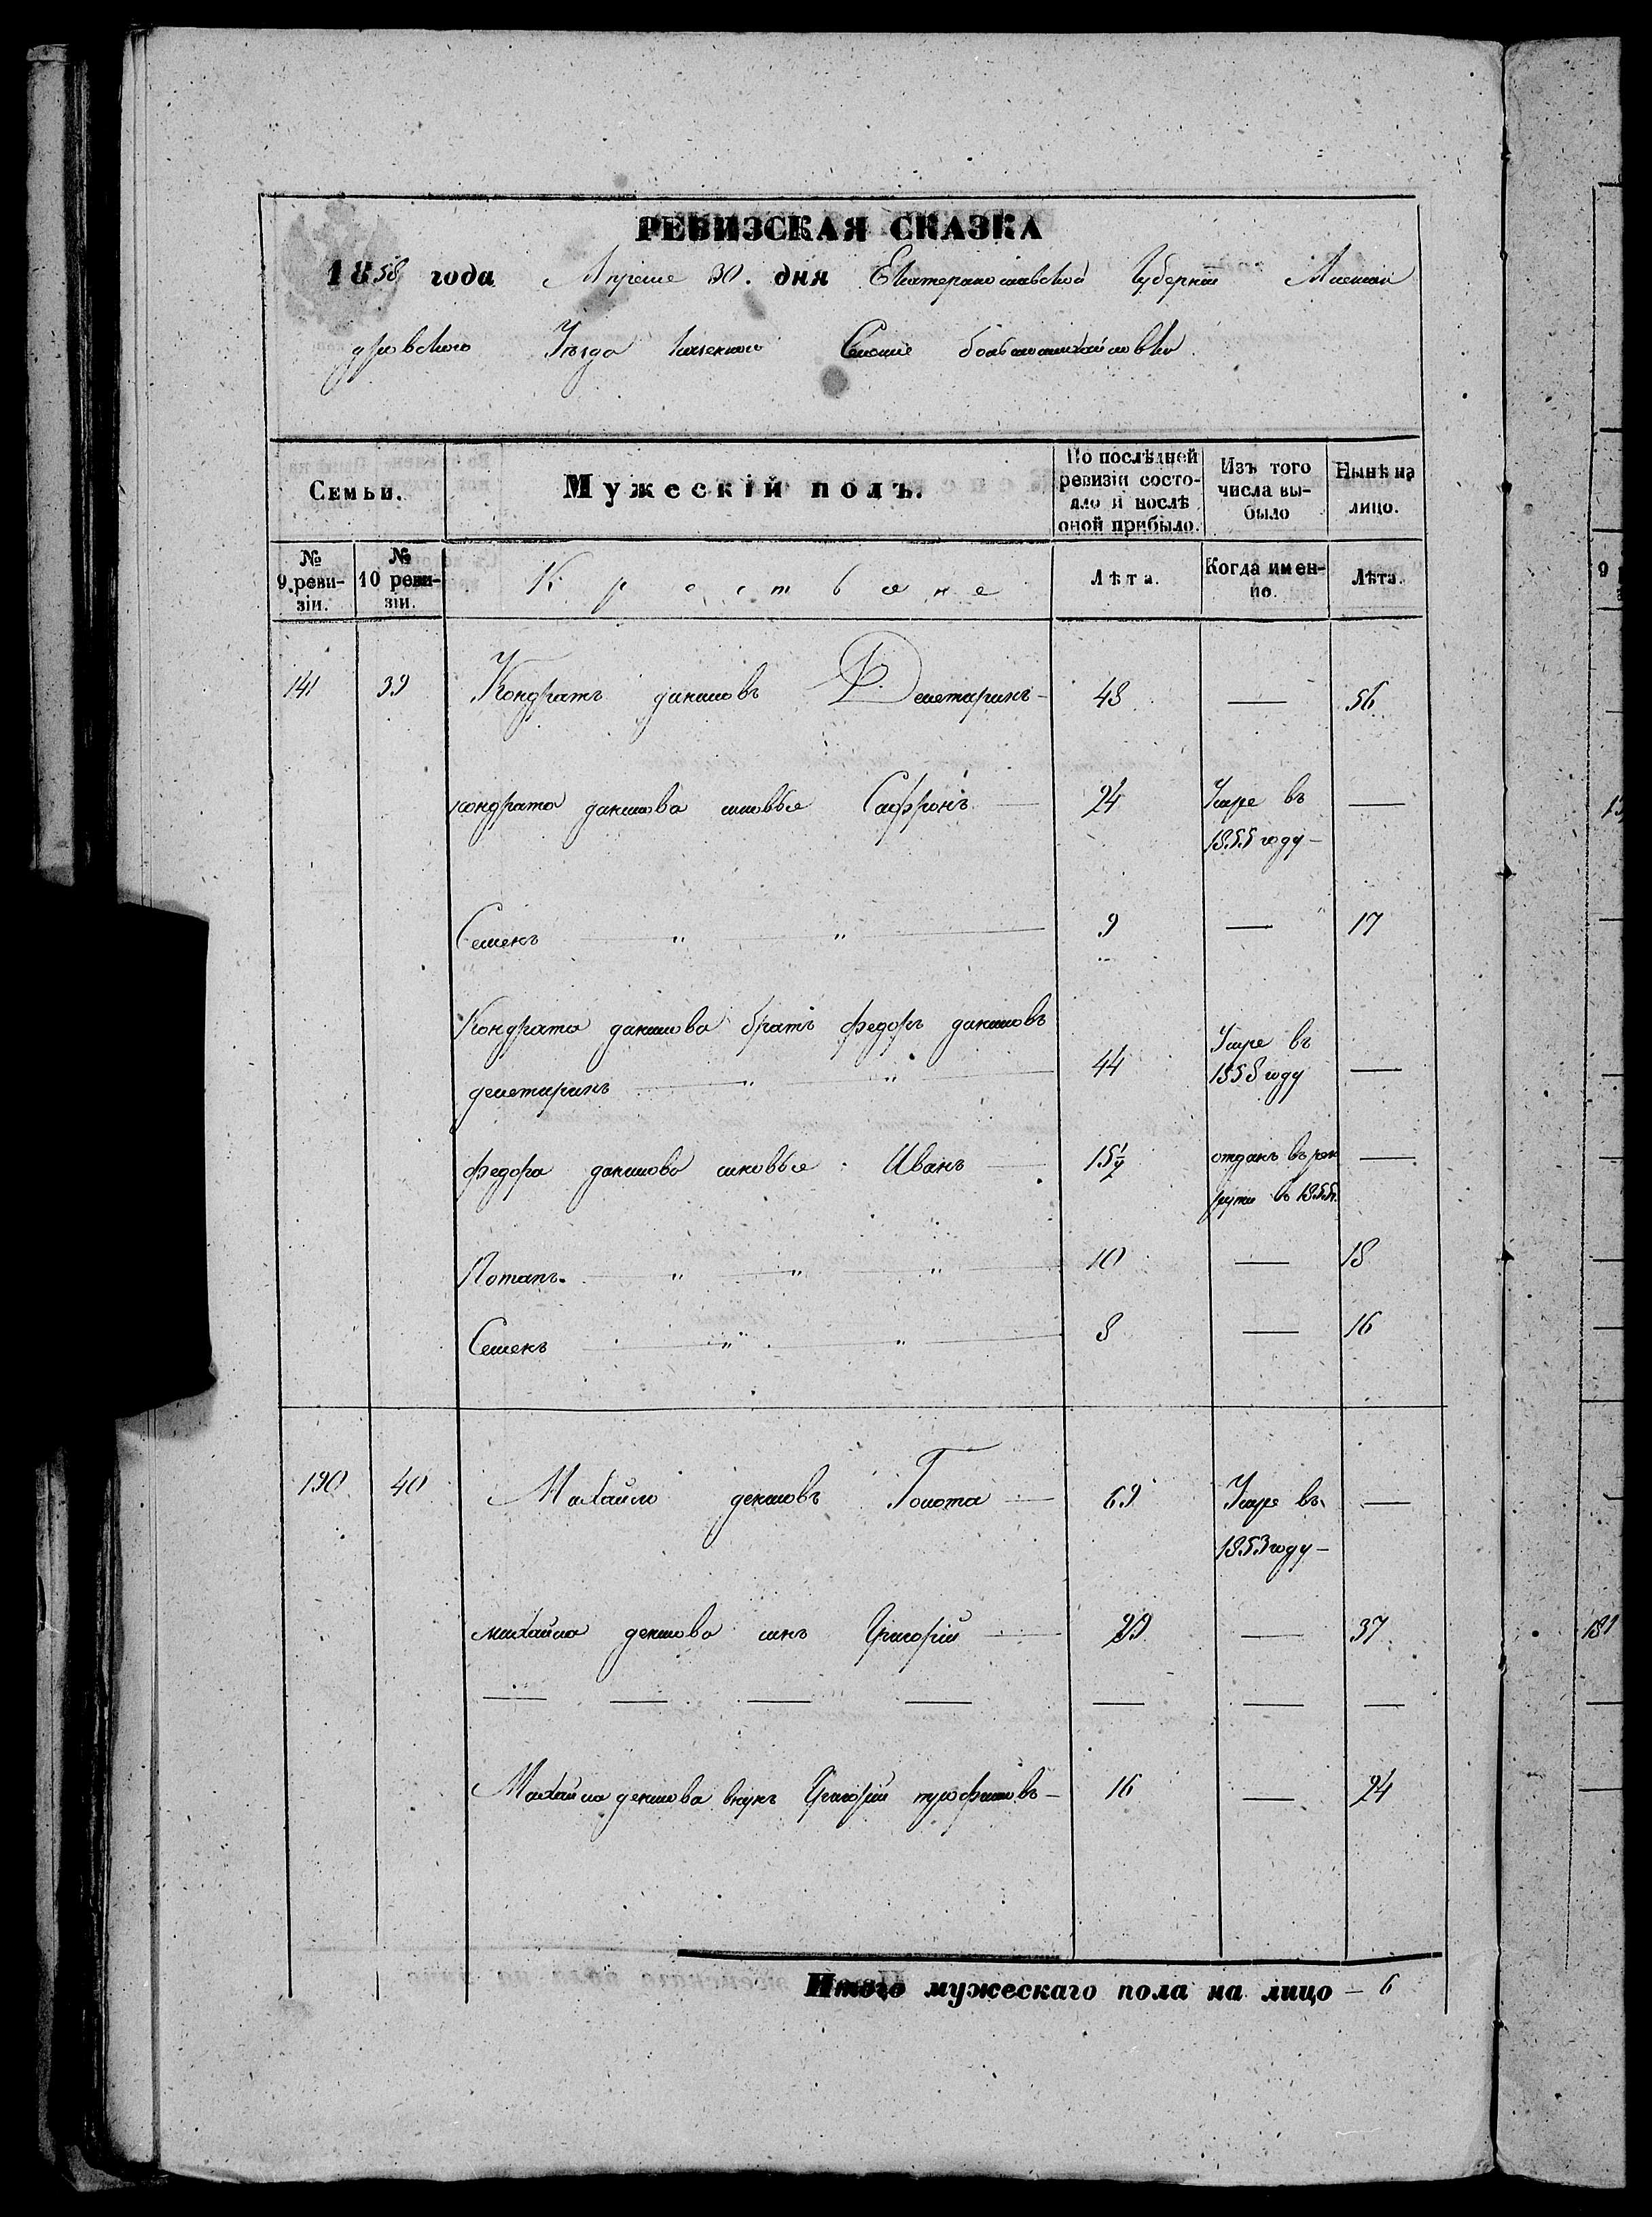 РЕВИЗСКАЯ СКАЗКА
1858 года Апреле 30. дня Екатеринославской Губернии Алексан
дровского Уезда Селение большомихайловка
Семьи. Мужескій полъ. По послѣдней ревизіи состояло и послѣ оной прибыло. Изъ того числа выбыло Нынѣ на лицо.
№ 9 ревизіи. № 10 ревизіи. Крестьяне Лѣта. Когда именно. Лѣта.
141 39 Кондратъ даниловъ — 48 — 56
кондрата данилова сыновье Сафронъ — 24 Умре въ —
1855 году —
Семенъ — „ — „ — 9 — 17
Кондрата данилова братъ федоръ даниловъ
— „ — „ — 44 Умре въ 1858 году —
федора данилова сыновье Иванъ — 15 1/2 отданъ въ рек —
руты в 1855г.
Потапъ. — „ — „ — „ — 10 — 18
Семенъ — „ — „ — 8 — 16
190 40 Михайло Голота — 69 Умре въ —
1853 году —
михайла сынъ Григорій — 29 — 37
— — — — — — —
Михайла внукъ Григорій трофимовъ — 16 — 24
Итого мужескаго пола на лицо — 6
9
181